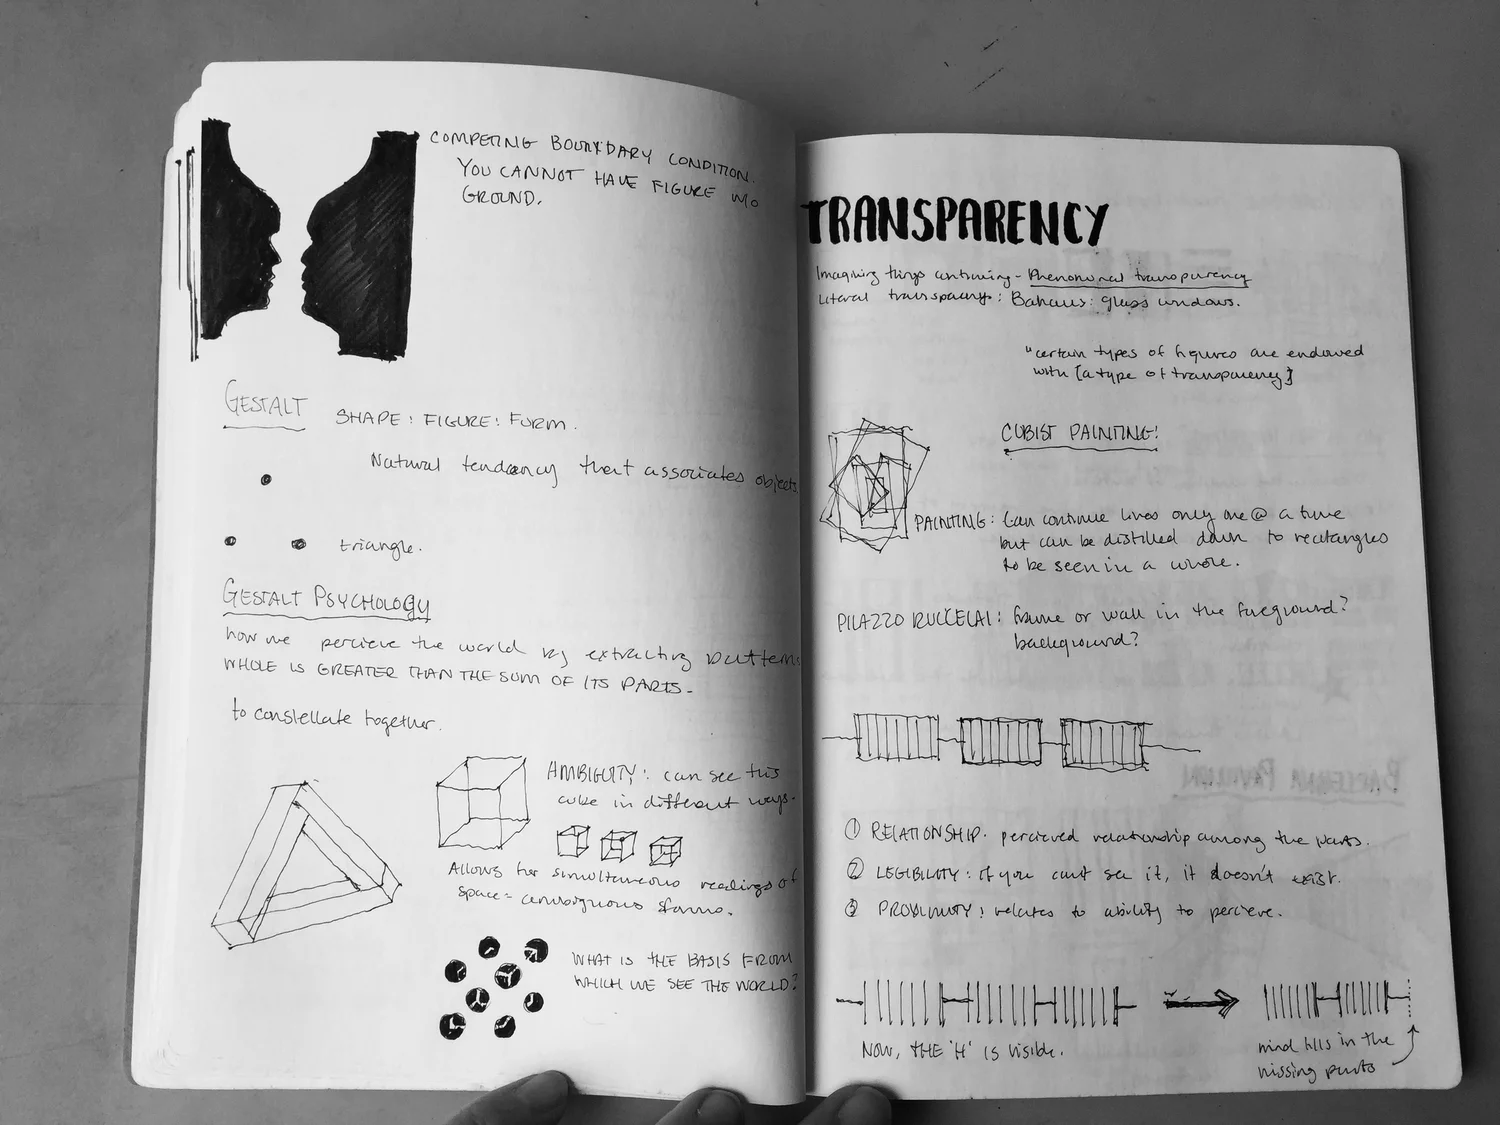 COMPETING BOUNDARY CONDITION.
YOU CANNOT HAVE FIGURE W/O
GROUND.
GESTALT
SHAPE: FIGURE: FORM.
Natural tendancy that associates objects.
triangle.
GESTALT PSYCHOLOGY
how we percieve the world by extracting patterns
WHOLE IS GREATER THAN THE SUM OF ITS PARTS-
to constellate together.
AMBIGUITY: can see this
cube in different ways.
Allows for simultaneous readings of
space = ambiguous forms.
WHAT IS THE BASIS FROM
WHICH WE SEE THE WORLD?
TRANSPARENCY
Imagining things continuing - Phenomonal transparency
Literal transparency: Bahaus: glass windows.
"certain types of figures are endowed
with [a type of transparency]
CUBIST PAINTING:
PAINTING: Can continue lives only one @ a time
but can be distilled down to rectangles
to be seen in a whole.
PILAZZO RUCCELAI: frame or wall in the foreground?
background?
① RELATIONSHIP. percieved relationship among the parts.
② LEGIBILITY: if you cant see it, it doesn't exist.
③ PROXIMITY: relates to ability to percieve.
NOW, THE 'H' IS visible.
mind fills in the
missing parts
BARCELONA PAVILION